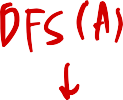 DFS(A)
↓